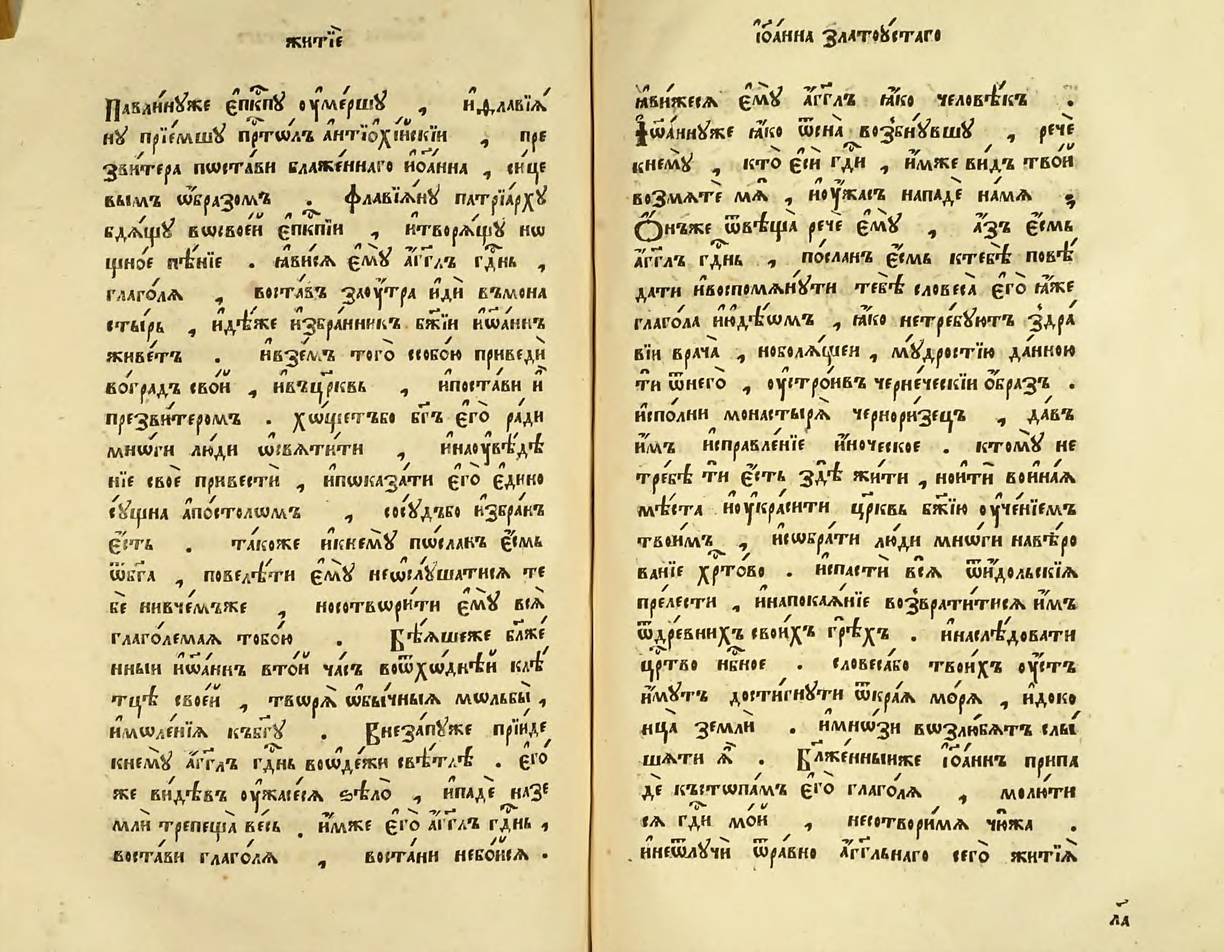 житїѐ
Павлинꙋже є҆пⷭ҇кпꙋ ᲂу҆ме́ршꙋ , и҆флавїѧ́
нꙋ прїе́мшꙋ прⷭ҇то́лъ а҆нтїѻхі́искїи , пре
звѝтера пѡста́ви блаже́ннаго и҆ѻ́анна , си́це
вымъ ѡ҆́бразомъ . флавїѧ́нꙋ патрїа́рхꙋ
бдѧ́щꙋ вѡсвое́й є҆пⷭ҇кпїи , и҆творѧ́щꙋ нѡ
щно́е пѣ́нїе . ꙗ҆ви́сѧ є҆мꙋ̀ а҆́гг҃лъ гдⷭ҇нь ,
глаго́лѧ , воста́въ заᲂу҆́тра идѝ въмона
сты́рь , и҆дѣ́же и҆збра́нникъ бж҃їи и҆ѡ́аннъ
живе́тъ . и҆взе́мъ того̀ ссобо́ю приведѝ
во́градъ сво́й , и҆въцр҃квь , и҆поста́ви и҆̀
презви́теромъ . хѡ́щетъбо бг҃ъ є҆го̀ ра́ди
мнѡ́ги лю́ди ѡ҆свѧти́ти , и҆наᲂу҆вѣ́дѣ
нїе своѐ привестѝ , и҆пѡказа́ти є҆го̀ є҆́дино
сꙋ́щна а҆по́столѡмъ , сосꙋ́дъбо и҆збра́нъ
є҆́сть . та́коже и҆кнемꙋ̀ пѡ́сланъ є҆́смь
ѿбг҃а , повелѣ́ти є҆мꙋ̀ неѡ҆слꙋ́шатисѧ те
бѐ нивче́мъже , носотвѡри́ти є҆мꙋ̀ всѧ̀
глаго́лемаѧ тобо́ю . Бѣ́ѧшеже бл҃же́
нныи и҆ѡ́аннъ вто́й ча́съ воѿхѡ́днѣй клѣ́
тцѣ своѐй , творѧ̀ ѡ҆бы́чныѧ мѡльбы̀ ,
и҆мѡле́нїѧ къбг҃ꙋ . Внеза́пꙋже прїи́де
кнемꙋ̀ а҆́гг҃лъ гдⷭ҇нь воѡ҆де́жи свѣ́тлѣ . є҆го́
же ви́дѣвъ ᲂу҆жасе́сѧ ѕѣло̀ , и҆падѐ назе
млѝ трепеща̀ ве́сь . и҆́мже є҆го̀ а҆́гг҃лъ гдⷭ҇нь ,
воста́ви глаго́лѧ , воста́ни небо́йсѧ .
і҆ѻ́анна златоꙋ́стаго
ꙗ҆ви́жесѧ є҆мꙋ̀ а҆́гг҃лъ ꙗ҆́ко человѣ́къ .
І҆ѡ́аннꙋже ꙗ҆́ко ѿсна̀ возбнꙋ́вшꙋ , речѐ
кнемꙋ̀ , кто̀ є҆сѝ гдⷭ҇и , и҆́мже ви́дъ тво́й
возмѧ́те мѧ̀ , и҆ᲂу҆́жасъ нападѐ намѧ̀ ;
Ѻ҆́нъже ѿвѣща̀ речѐ є҆мꙋ̀ , а҆́зъ є҆́смь
а҆́гг҃лъ гдⷭ҇нь , по́сланъ є҆́смь ктебѣ̀ повѣ́
дати и҆воспомѧнꙋ́ти тебѣ̀ словеса̀ є҆го̀ ꙗ҆́же
глаго́ла і҆ю҆дѣ́ѡмъ , ꙗ҆́ко нетре́бꙋютъ здра́
вїи врача̀ , ноболѧ́щеи , мꙋ́дростїю да́нною
ти ѿнего̀ , ᲂу҆стро́ивъ черне́ческїи ѻ҆́браз .
и҆спо́лни монастырѧ̀ чернори́зецъ , да́въ
и҆́мъ и҆справле́нїе и҆́ноческое . ктомꙋ̀ не
тре́бѣ ти є҆́сть здѣ̀ жи́ти , но̀и҆тѝ во́инаѧ
мѣ́ста и҆ᲂу҆кра́сити цр҃квь бж҃їю ᲂу҆че́нїемъ
твои́мъ , и҆сѡбра́ти лю́ди мнѡ́ги навѣ́ро
ванїе хрⷭ҇то́во . и҆спастѝ всѧ̀ ѿи́дольскїѧ
пре́лести , и҆напокаѧ́нїе возврати́тисѧ и҆́мъ
ѿдре́внихъ свои́хъ грѣ́хъ . и҆наслѣ́довати
црⷭ҇тво нбⷭ҇ное . словеса́бо твои́хъ ᲂу҆́стъ
и҆́мꙋтъ дости́гнꙋти ѿкра́ѧ мо́рѧ , и҆доко
нца̀ землѝ . и҆мно́ѕи вѡзлю́бѧтъ слы́
шати ѧ҆̀ . Бл҃же́нныиже і҆ѻ́аннъ припа
дѐ къстѡпа́мъ є҆го̀ глаго́лѧ , молю́ти
сѧ гдⷭ҇и мо́й , несотвори́мѧ чю́жа .
и҆неѿлꙋчѝ ѿра́вно а҆́гг҃льнаго сего̀ житїѧ̀
ла